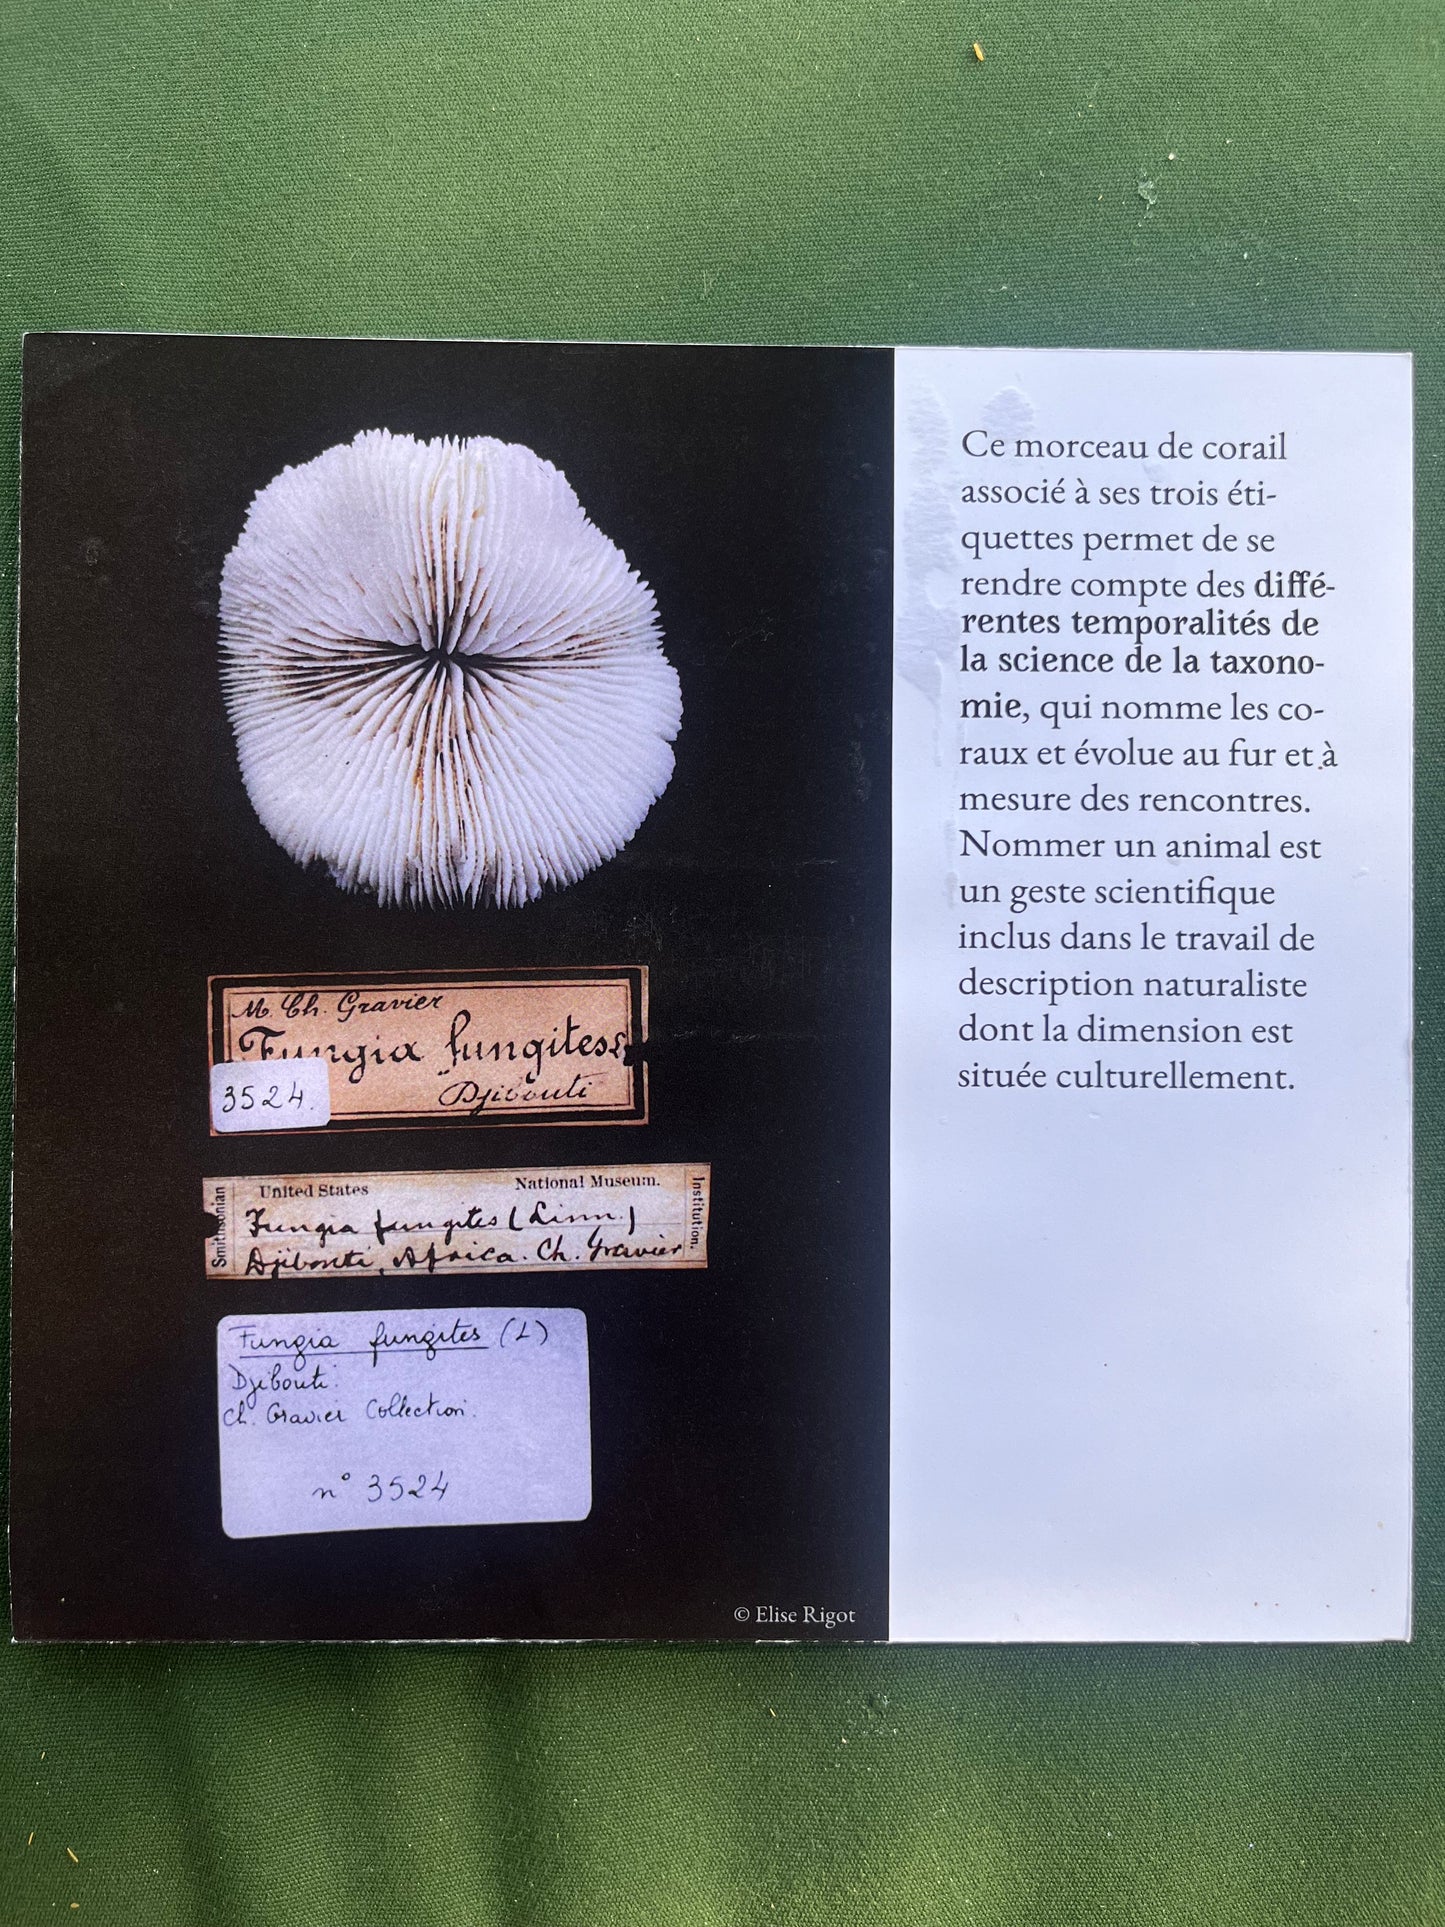 M. Ch. Gravier
Fungia fungites L.
Djibouti
3524.
United States National Museum.
Smithsonian
Fungia fungites (Linn.)
Djibouti, Africa. Ch. Gravier
Institution.
Fungia fungites (L)
Djibouti.
Ch. Gravier Collection.
n° 3524
© Elise Rigot
Ce morceau de corail
associé à ses trois éti-
quettes permet de se
rendre compte des diffé-
rentes temporalités de
la science de la taxono-
mie, qui nomme les co-
raux et évolue au fur et à
mesure des rencontres.
Nommer un animal est
un geste scientifique
inclus dans le travail de
description naturaliste
dont la dimension est
située culturellement.